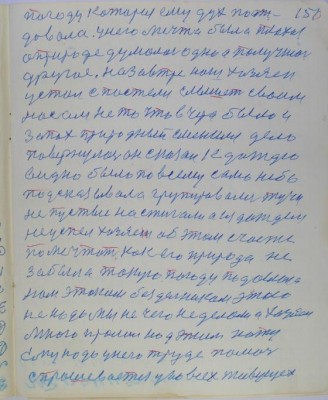 погоду которая ему дух пот- 150
довала. у него мечта была плохая
о природе думалось одно а получилось
другое, на завтра нам хозяен
устал с постели слышет своим
носом не то что вчера было и
запах природный сменился дело
повернулось он сказал к дождю
видно было по всему само небо
подсказывало групировали тучи
не пустые настигали а из дождем
неуспел хозяен об этом счастье
помечтать, как его природа не
забыла такую погоду подослала
нам этаким бездельникам этого
не надо мы не чего не делом а хозяен
много пролил над этим поту
ему надо у него труде помощ
спрашевается у во всех живущех